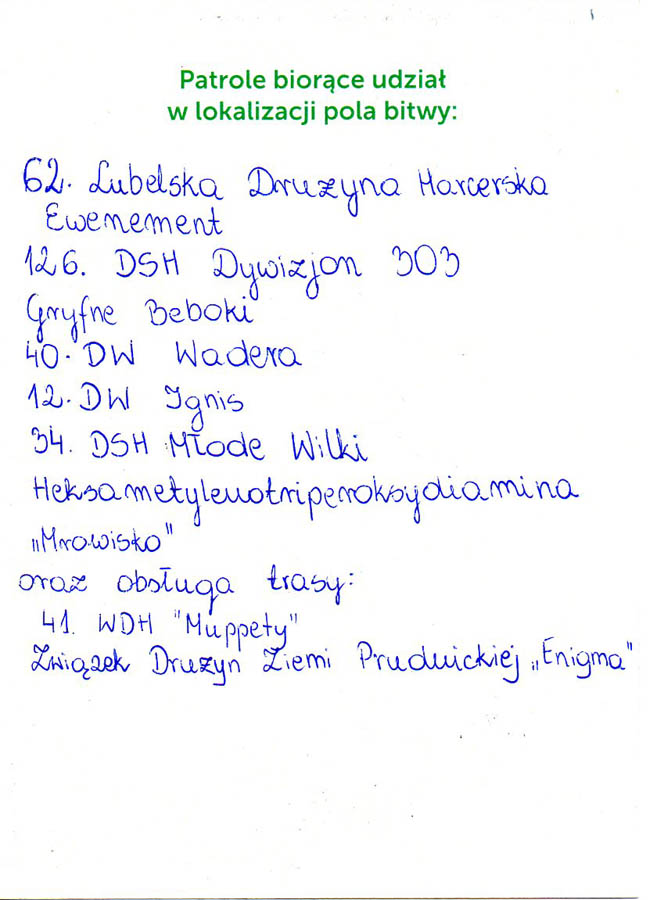 Patrole biorące udział
w lokalizacji pola bitwy:
62. Lubelska Drużyna Harcerska
Ewenement
126. DSH Dywizjon 303
Gryfne Beboki
40. DW Wadera
12. DW Ignis
34. DSH Młode Wilki
Heksametylenotriperoksydiamina
„Mrowisko"
oraz obsługa trasy:
41. WDH "Muppety"
Związek Drużyn Ziemi Prudnickiej „Enigma"